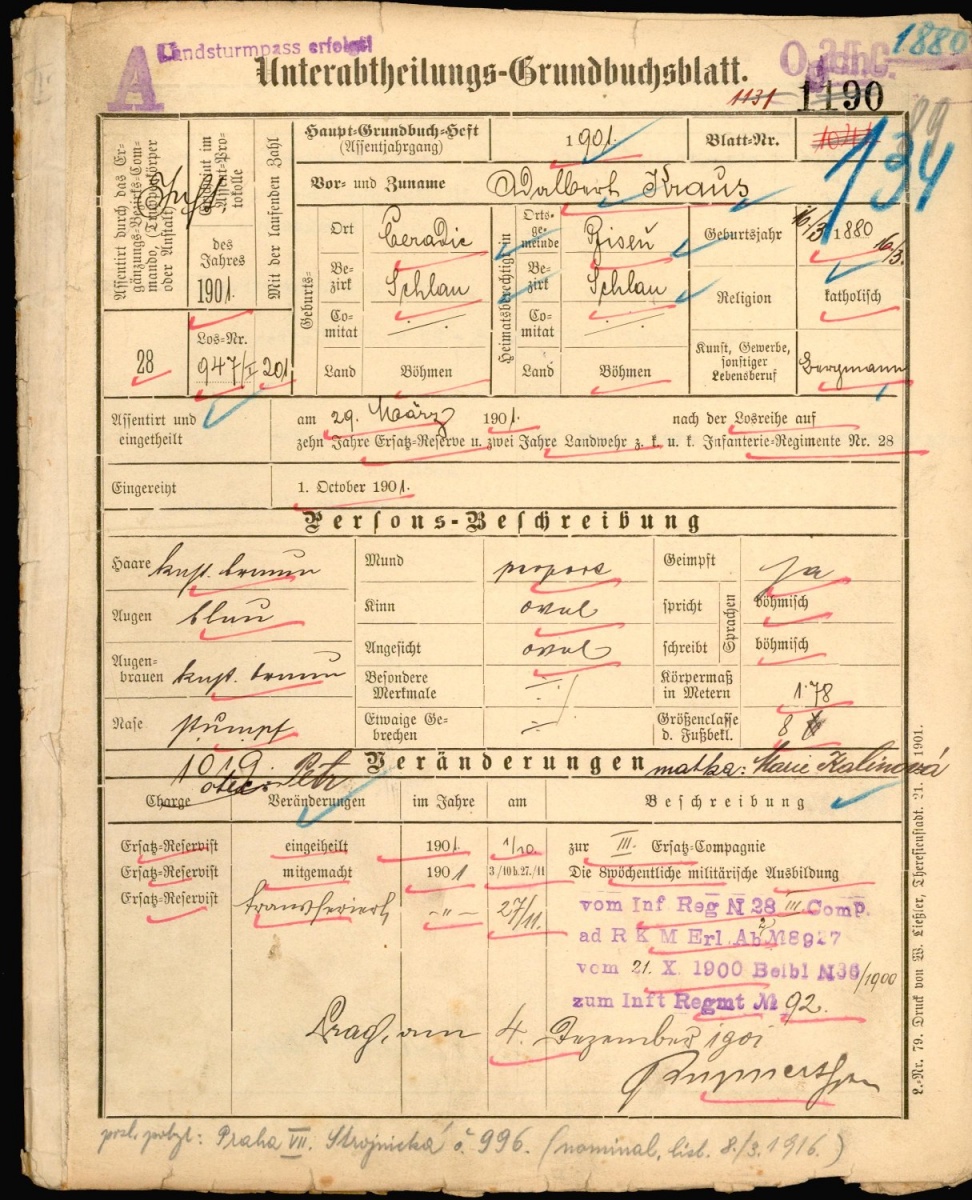 Landsturmpass erfolgt
A
1880
Unterabtheilungs-Grundbuchsblatt.
1131 1190
134
Assentirt durch das Ergänzungs-Bezirks-Commando, (Truppenkörper oder Anstalt)
28
im Assent-Protokolle
des Jahres
1901.
Los-Nr.
947/II
Mit der laufenden Zahl
201
Haupt-Grundbuch-Heft
(Assentjahrgang)
1901.
Blatt-Nr.
Vor- und Zuname
Adalbert Kraus
Geburts-
Ort
Ceradic
Bezirk
Schlan
Comitat
Land
Böhmen
Heimatsberechtigt in
Ortsgemeinde
Bezirk
Schlan
Comitat
Land
Böhmen
Geburtsjahr
16/3 1880 16/3.
Religion
katholisch
Kunst, Gewerbe, sonstiger Lebensberuf
Bergmann
Assentirt und eingetheilt
am 29. März 1901. nach der Losreihe auf
zehn Jahre Ersatz-Reserve u. zwei Jahre Landwehr z. k. u. k. Infanterie-Regimente Nr. 28
Eingereiht
1. October 1901.
Persons-Beschreibung
Haare kast. braun
Mund proport
Geimpft ja
Augen blau
Kinn oval
spricht böhmisch
Sprachen
Augenbrauen kast. braun
Angesicht oval
schreibt böhmisch
Besondere Merkmale
Körpermaß in Metern 1·78
Nase stumpf
Etwaige Gebrechen
Größenclasse d. Fußbekl. 8
1019.
otec: Petr
Veränderungen
matka: Marie Kalinová
Charge Veränderungen im Jahre am Beschreibung
Ersatz-Reservist eingeiheilt 1901. 1/10. zur III. Ersatz-Compagnie
Ersatz-Reservist mitgemacht 1901 3/10 b. 27./11 Die 8wöchentliche militärische Ausbildung
Ersatz-Reservist transferiert -"- 27/11. vom Inf Reg N 28 III Comp.
ad R K M Erl. Ab 2 N 8927
vom 21. X. 1900 Beibl N 36/1900
zum Inft Regmt № 92.
Prag, am 4. Dezember 1901
L.-Nr. 79. Druck von W. Ließler, Theresienstadt. 21. 1901.
posl. pobyt: Praha VII. Strojnická č. 996. (nominal. list. 8./3. 1916.)